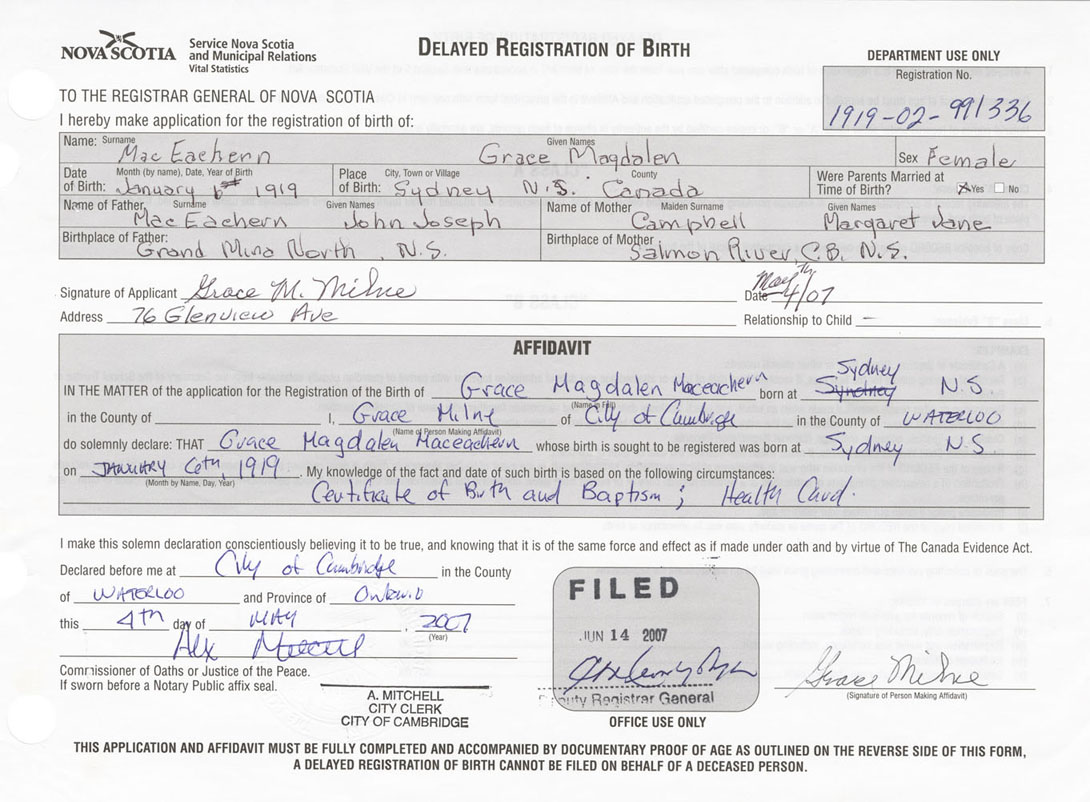 NOVA SCOTIA
Service Nova Scotia
and Municipal Relations
Vital Statistics
DELAYED REGISTRATION OF BIRTH
DEPARTMENT USE ONLY
Registration No.
1919-02-991336
TO THE REGISTRAR GENERAL OF NOVA SCOTIA
I hereby make application for the registration of birth of:
Name: Surname Given Names
Mac Eachern Grace Magdalen Sex Female
Date of Birth: Month (by name), Date, Year of Birth Place of Birth: City, Town or Village County Were Parents Married at Time of Birth? Yes No
January 6th 1919 Sydney N.S. Canada
Name of Father, Surname Given Names Name of Mother Maiden Surname Given Names
Mac Eachern John Joseph Campbell Margaret Jane
Birthplace of Father: Birthplace of Mother
Grand Mira North, N.S. Salmon River, C.B. N.S.
Signature of Applicant Grace M. Milne Date May 4th/07
Address 76 Glenview Ave Relationship to Child –
AFFIDAVIT
IN THE MATTER of the application for the Registration of the Birth of Grace Magdalen Maceachern born at Sydney N.S.
(Name in Full)
in the County of I, Grace Milne of City of Cambridge in the County of WATERLOO
(Name of Person Making Affidavit)
do solemnly declare: THAT Grace Magdalen Maceachern whose birth is sought to be registered was born at Sydney N.S
on JANUARY 6th 1919. My knowledge of the fact and date of such birth is based on the following circumstances:
(Month by Name, Day, Year)
Certificate of Birth and Baptism; Health Card.
I make this solemn declaration conscientiously believing it to be true, and knowing that it is of the same force and effect as if made under oath and by virtue of The Canada Evidence Act.
Declared before me at City of Cambridge in the County
of WATERLOO and Province of Ontario
this 4th day of MAY, 2007
(Year)
Alex Mitchell
Commissioner of Oaths or Justice of the Peace.
If sworn before a Notary Public affix seal.
A. MITCHELL
CITY CLERK
CITY OF CAMBRIDGE
FILED
JUN 14 2007
Deputy Registrar General
OFFICE USE ONLY
Grace Milne
(Signature of Person Making Affidavit)
THIS APPLICATION AND AFFIDAVIT MUST BE FULLY COMPLETED AND ACCOMPANIED BY DOCUMENTARY PROOF OF AGE AS OUTLINED ON THE REVERSE SIDE OF THIS FORM,
A DELAYED REGISTRATION OF BIRTH CANNOT BE FILED ON BEHALF OF A DECEASED PERSON.